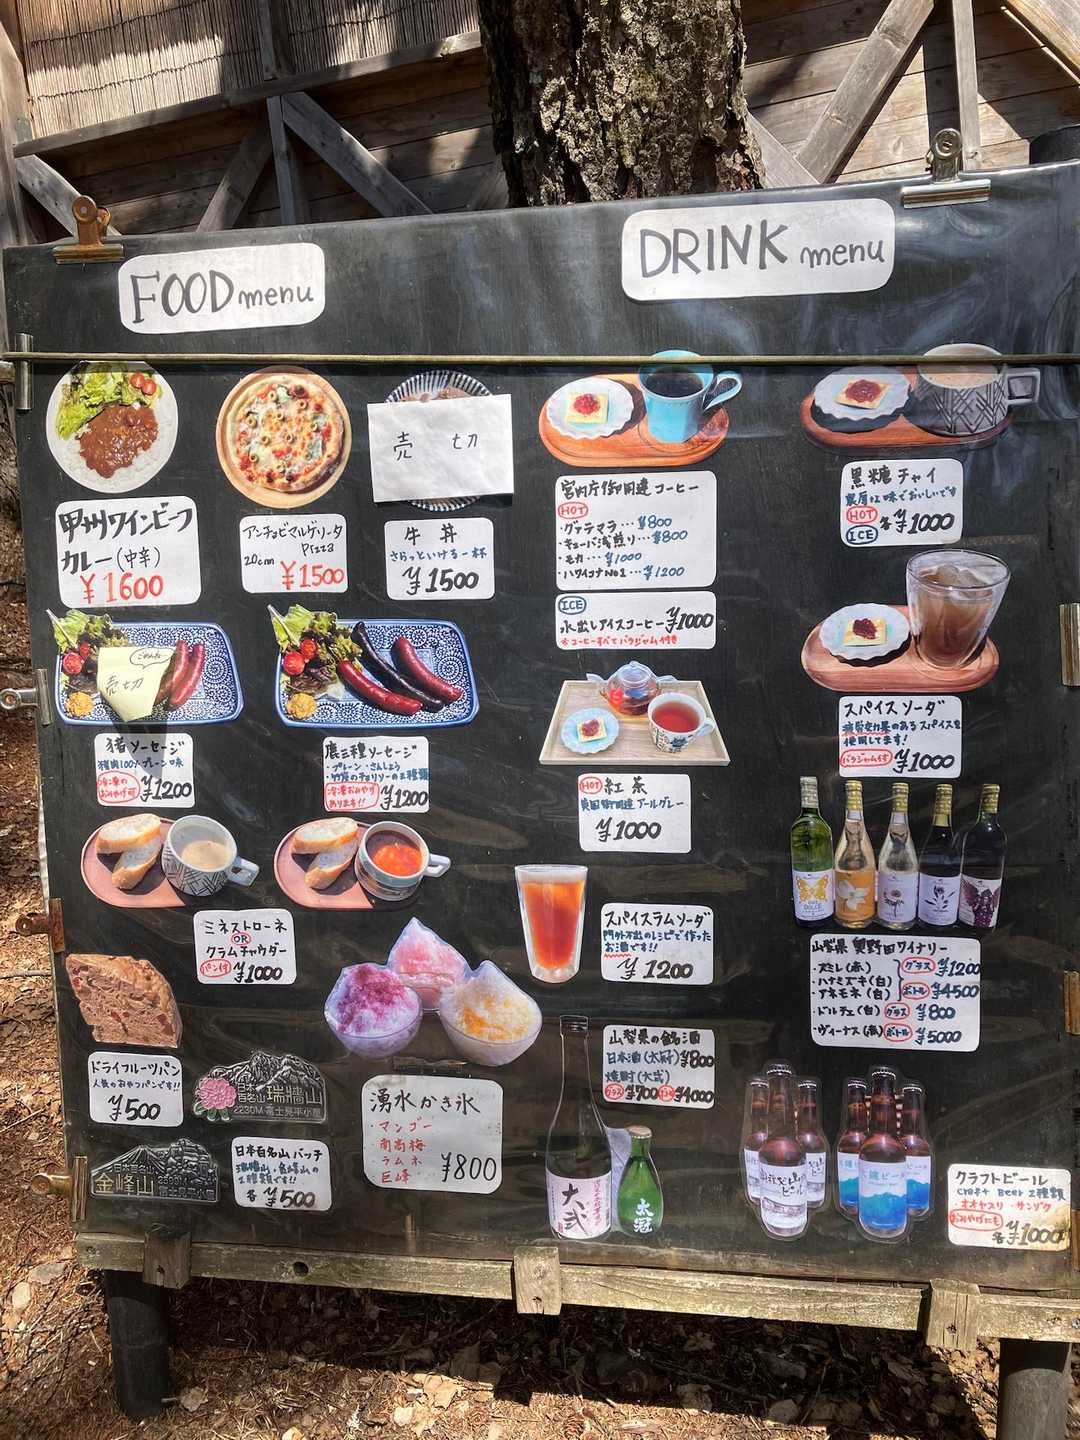 FOOD menu
DRINK menu
甲州ワインビーフ
カレー(中辛)
¥1600
アンチョビマルゲリータ
Pizza
20cm ¥1500
売切
牛丼
さらっといける一杯
¥1500
宮内庁御用達コーヒー
HOT
・グァテマラ…¥800
・キューバ浅煎り…¥800
・モカ…¥1000
・ハワイコナNo.1…¥1200
ICE
水出しアイスコーヒー ¥1000
※コーヒーすべてパラジャム付き
黒糖チャイ
濃厚な味でおいしいです
HOT
ICE
各¥1000
ごめんね
売切
猪ソーセージ
猪肉100%プレーン味
冷凍の
おみやげ可
¥1200
鹿三種ソーセージ
・プレーン・さんしょう
・竹炭のチョリソーの三種類
冷凍おみやげ
あります!!
¥1200
HOT 紅茶
英国御用達 アールグレー
¥1000
スパイスソーダ
疲労効果のあるスパイスを
使用してます!
パラジャム付 ¥1000
ミネストローネ
OR
クラムチャウダー
パン付 ¥1000
スパイスラムソーダ
門外不出のレシピで作った
お酒です!!
¥1200
山梨県 奥野田ワイナリー
・スミレ(赤)
・ハナミズキ(白)
・アネモネ(白)
グラス ¥1200
ボトル ¥4500
・ドルチェ(白) グラス ¥800
・ヴィーナス(赤) ボトル ¥5000
DOLCE
ドライフルーツパン
人気のおやつパンです!!
¥500
日本百名山 瑞牆山
2230M 富士見平小屋
日本百名山
金峰山
富士見平小屋
日本百名山バッチ
瑞牆山・金峰山の
2種類です!!
各¥500
湧水かき氷
・マンゴー
・南高梅
・ラムネ
・巨峰
¥800
山梨県の銘酒
日本酒(太冠) ¥800
焼酎(大弐)
グラス ¥700 ¥4000
大弐
太冠
ビール
ビール
クラフトビール
Craft Beer 2種類
・オオヤスリ・サンザク
おみやげにも
各¥1000